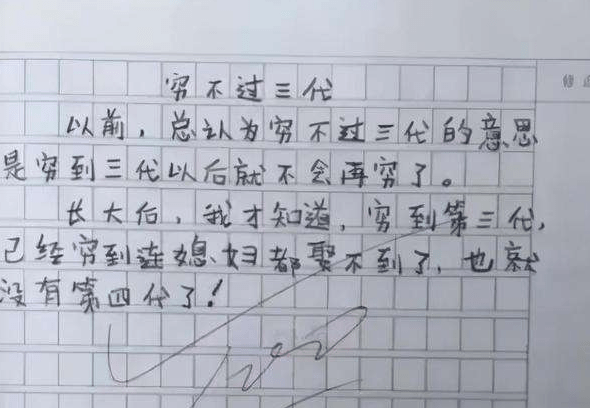 穷不过三代
以前，总认为穷不过三代的意思
是穷到三代以后就不会再穷了。
长大后，我才知道，穷到第三代，
已经穷到连媳妇都娶不到了，也就
没有第四代了！
100